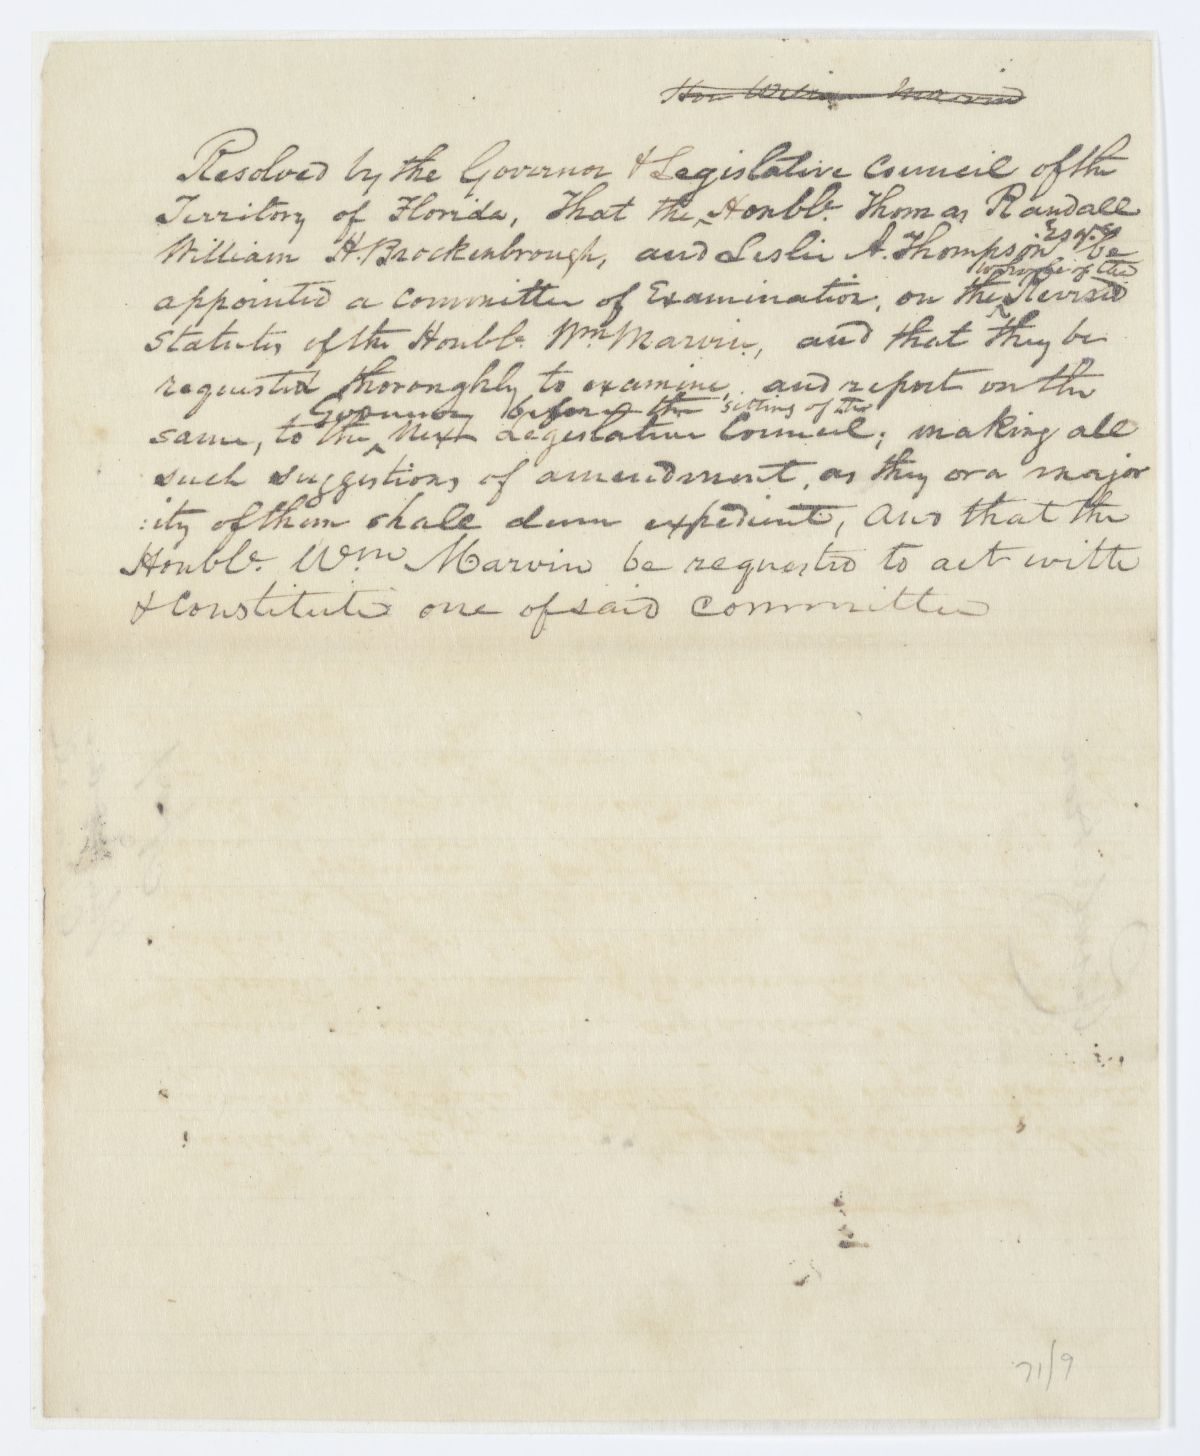 Hon William Marvin
Resolved by the Governor & Legislative Council of the
Territory of Florida, That the Honble. Thomas Randall
William H. Brockenbrough, and Leslie A. Thompson Esqrs be
appointed a committee of Examination, on the Revised
Statutes of the Honble. Wm Marvin, and that they be
requested thoroughly to examine, and report on the
Governor before the sitting of the
same, to the Next Legislative Council; making all
such suggestions of amendment, as they or a major
:ity of them shall deem expedient, and that the
Honble. Wm Marvin be requested to act with
& Constitute one of said committee
71/9